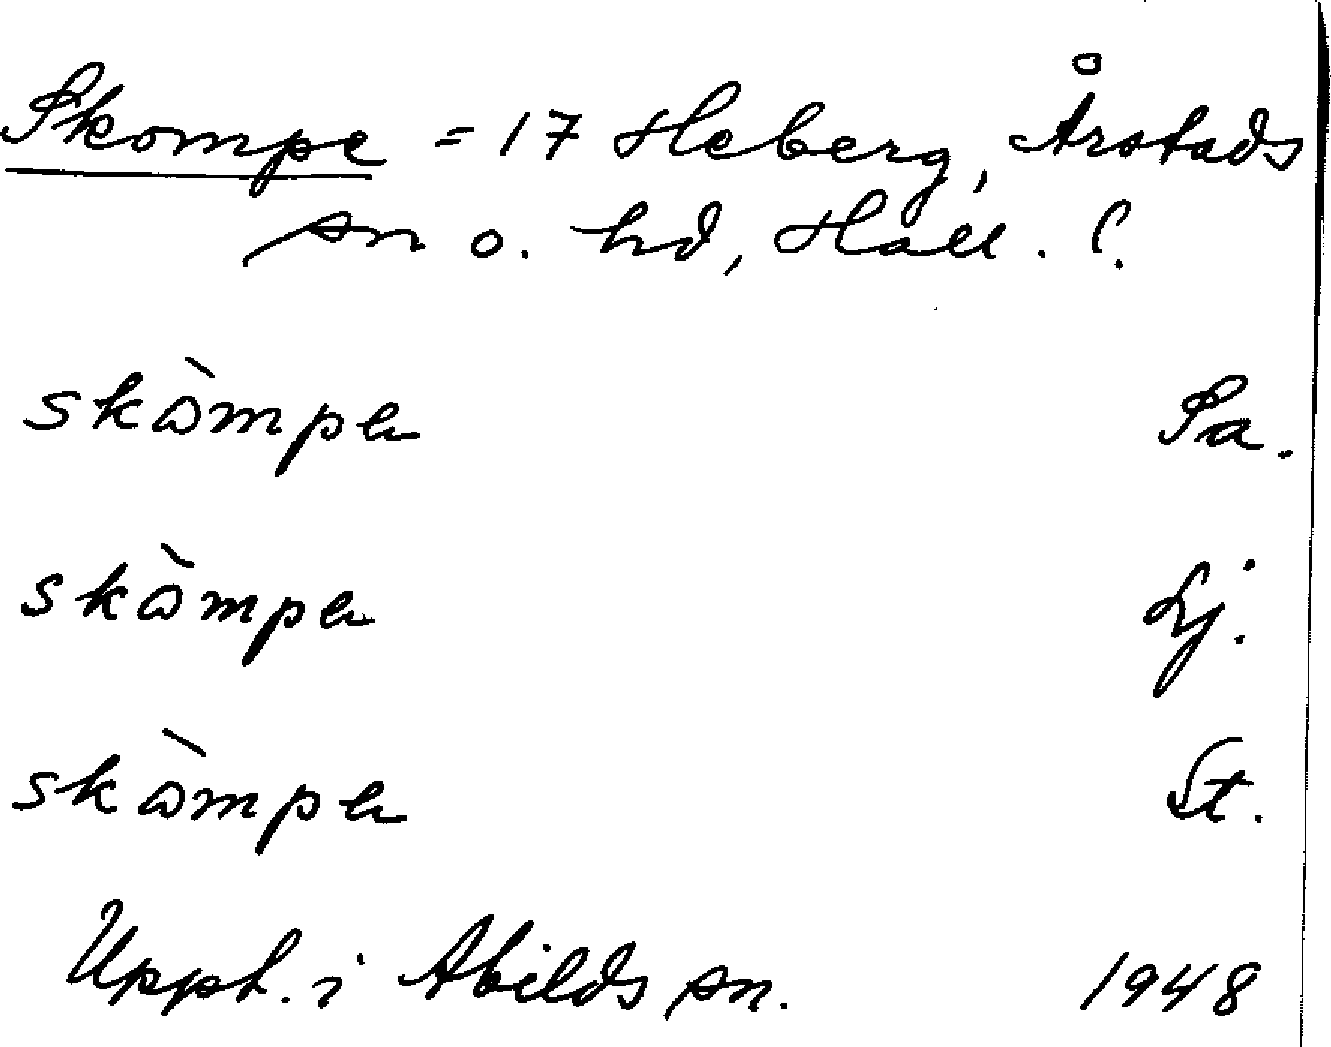 Skompe = 17 Heberg, Årstads
sn o. hd, Hall. l.
skòmpa Sa.
skòmpa Lj.
skòmpa St.
Uppt. i Abilds sn. 1948